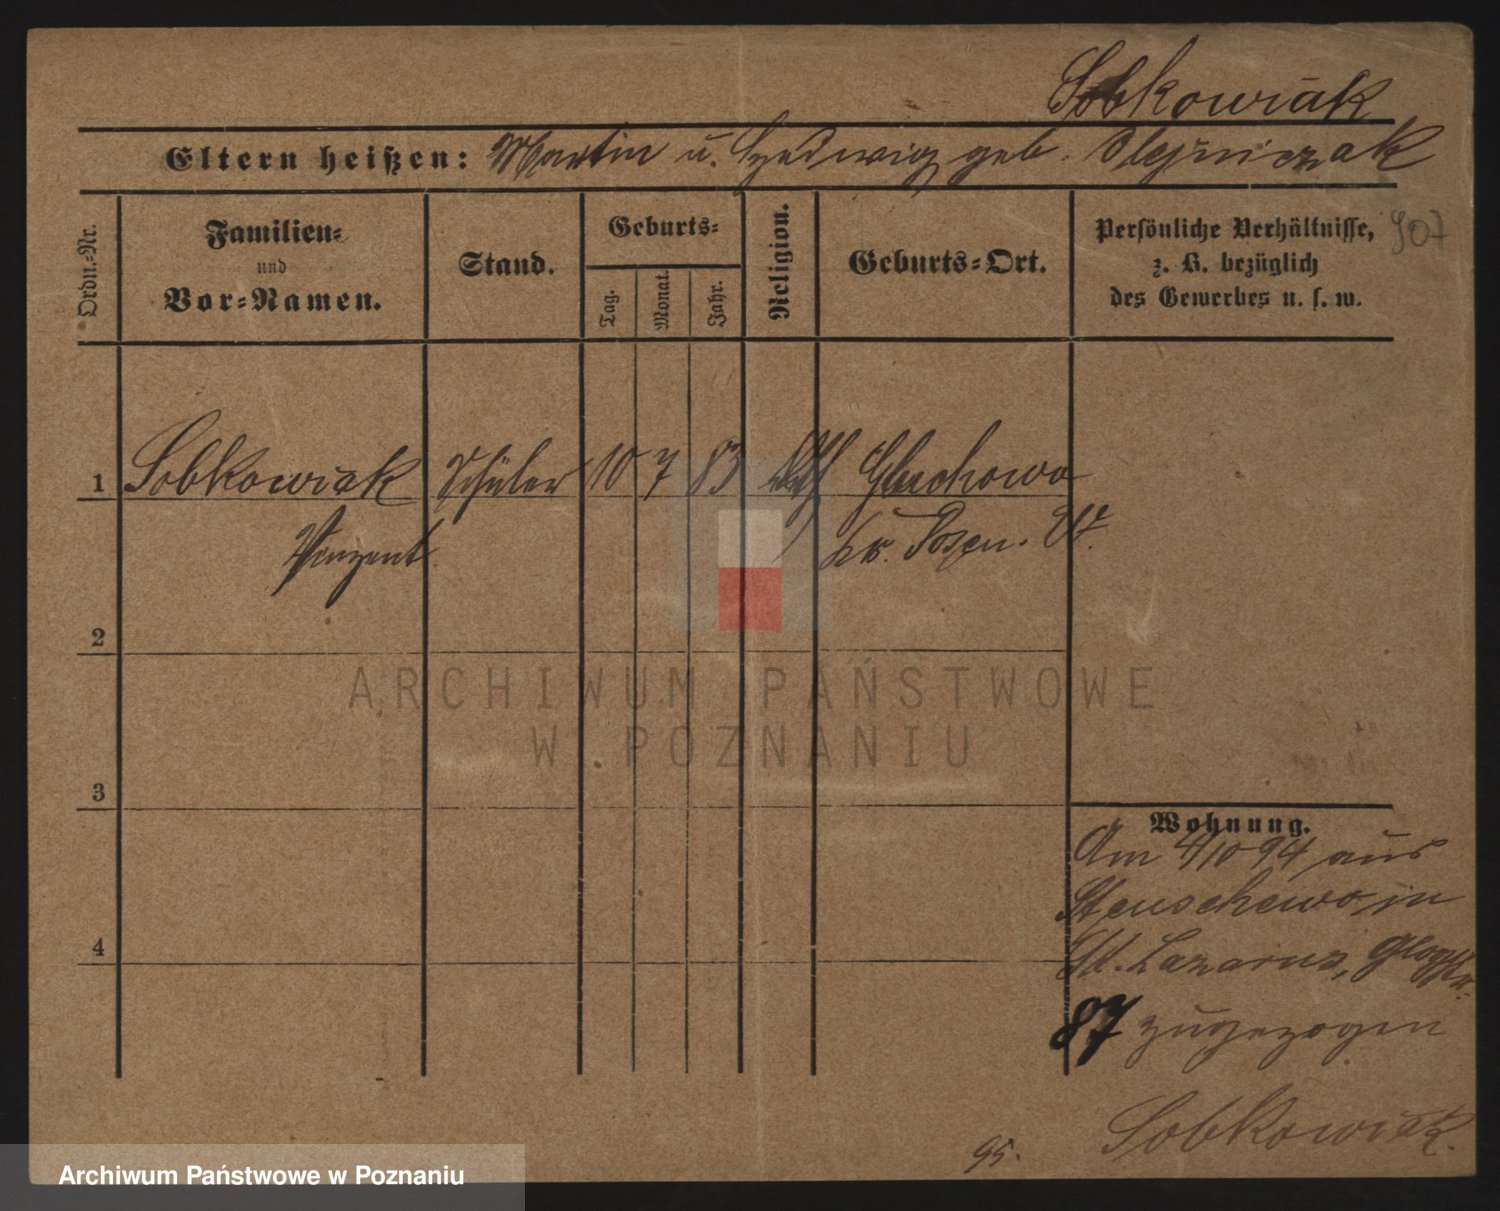 Sobkowiak
Eltern heißen: Martin u. Hedwig geb. Olejniczak
Ordn.-Nr.
Familien-
und
Vor-Namen.
Stand.
Geburts-
Tag.
Monat.
Jahr.
Religion.
Geburts-Ort.
Persönliche Verhältnisse,
z. B. bezüglich
des Gewerbes u. s. w.
907
1 Sobkowiak Schüler 10 7 83 Gluchowo
Vinzent Kr. Posen.
2
3
4
Wohnung.
Am 4/10 94 aus
Stenschewo in
St. Lazarus,
87 zugezogen
Sobkowiak.
95.
ARCHIWUM PAŃSTWOWE
W POZNANIU
Archiwum Państwowe w Poznaniu